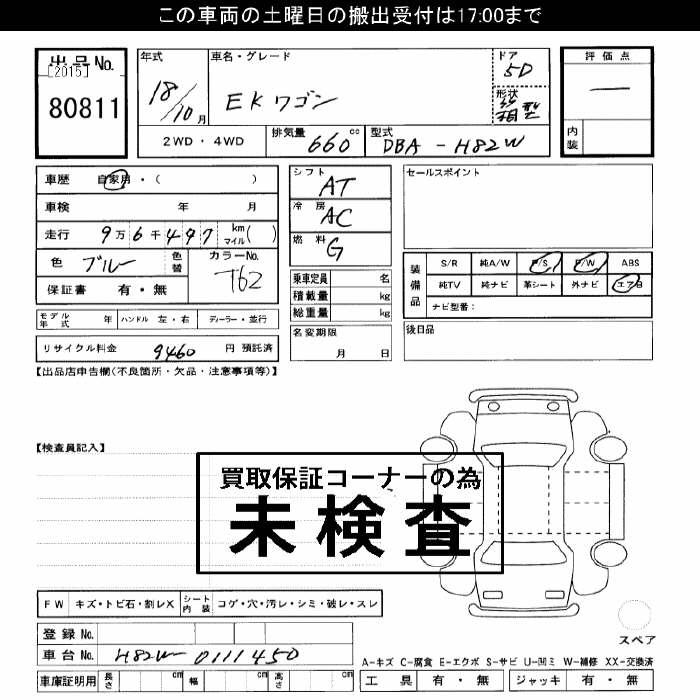 この車両の土曜日の搬出受付は17:00まで
出品No.
[2015]
80811
年式
18/10月
車名・グレード
EKワゴン
ドア
5D
形状
箱型
2WD・4WD
排気量
660cc
型式
DBA-H82W
評価点
―
内装
車歴 自家用・( )
車検 年 月
走行 9万6千497 km マイル( )
色 ブルー 色替
カラーNo.
T62
保証書 有・無
シフト
AT
冷房
AC
燃料
G
乗車定員 名
積載量 kg
総重量 kg
名変期限
月 日
セールスポイント
装備品
S/R 純A/W P/S P/W ABS
純TV 純ナビ 革シート 外ナビ エアB
ナビ型番:
後日品
モデル年式 年 ハンドル 左・右 ディーラー・並行
リサイクル料金 9460 円 預託済
【出品店申告欄(不良箇所・欠品・注意事項等)】
【検査員記入】
買取保証コーナーの為
未検査
FW キズ・トビ石・割レX シート内装 コゲ・穴・汚レ・シミ・破レ・スレ
登録No.
車台No. H82W-0111450
車庫証明用 長さ cm 幅 cm 高さ cm
スペア
A-キズ C-腐食 E-エクボ S-サビ U-凹ミ W-補修 XX-交換済
工具 有・無 ジャッキ 有・無